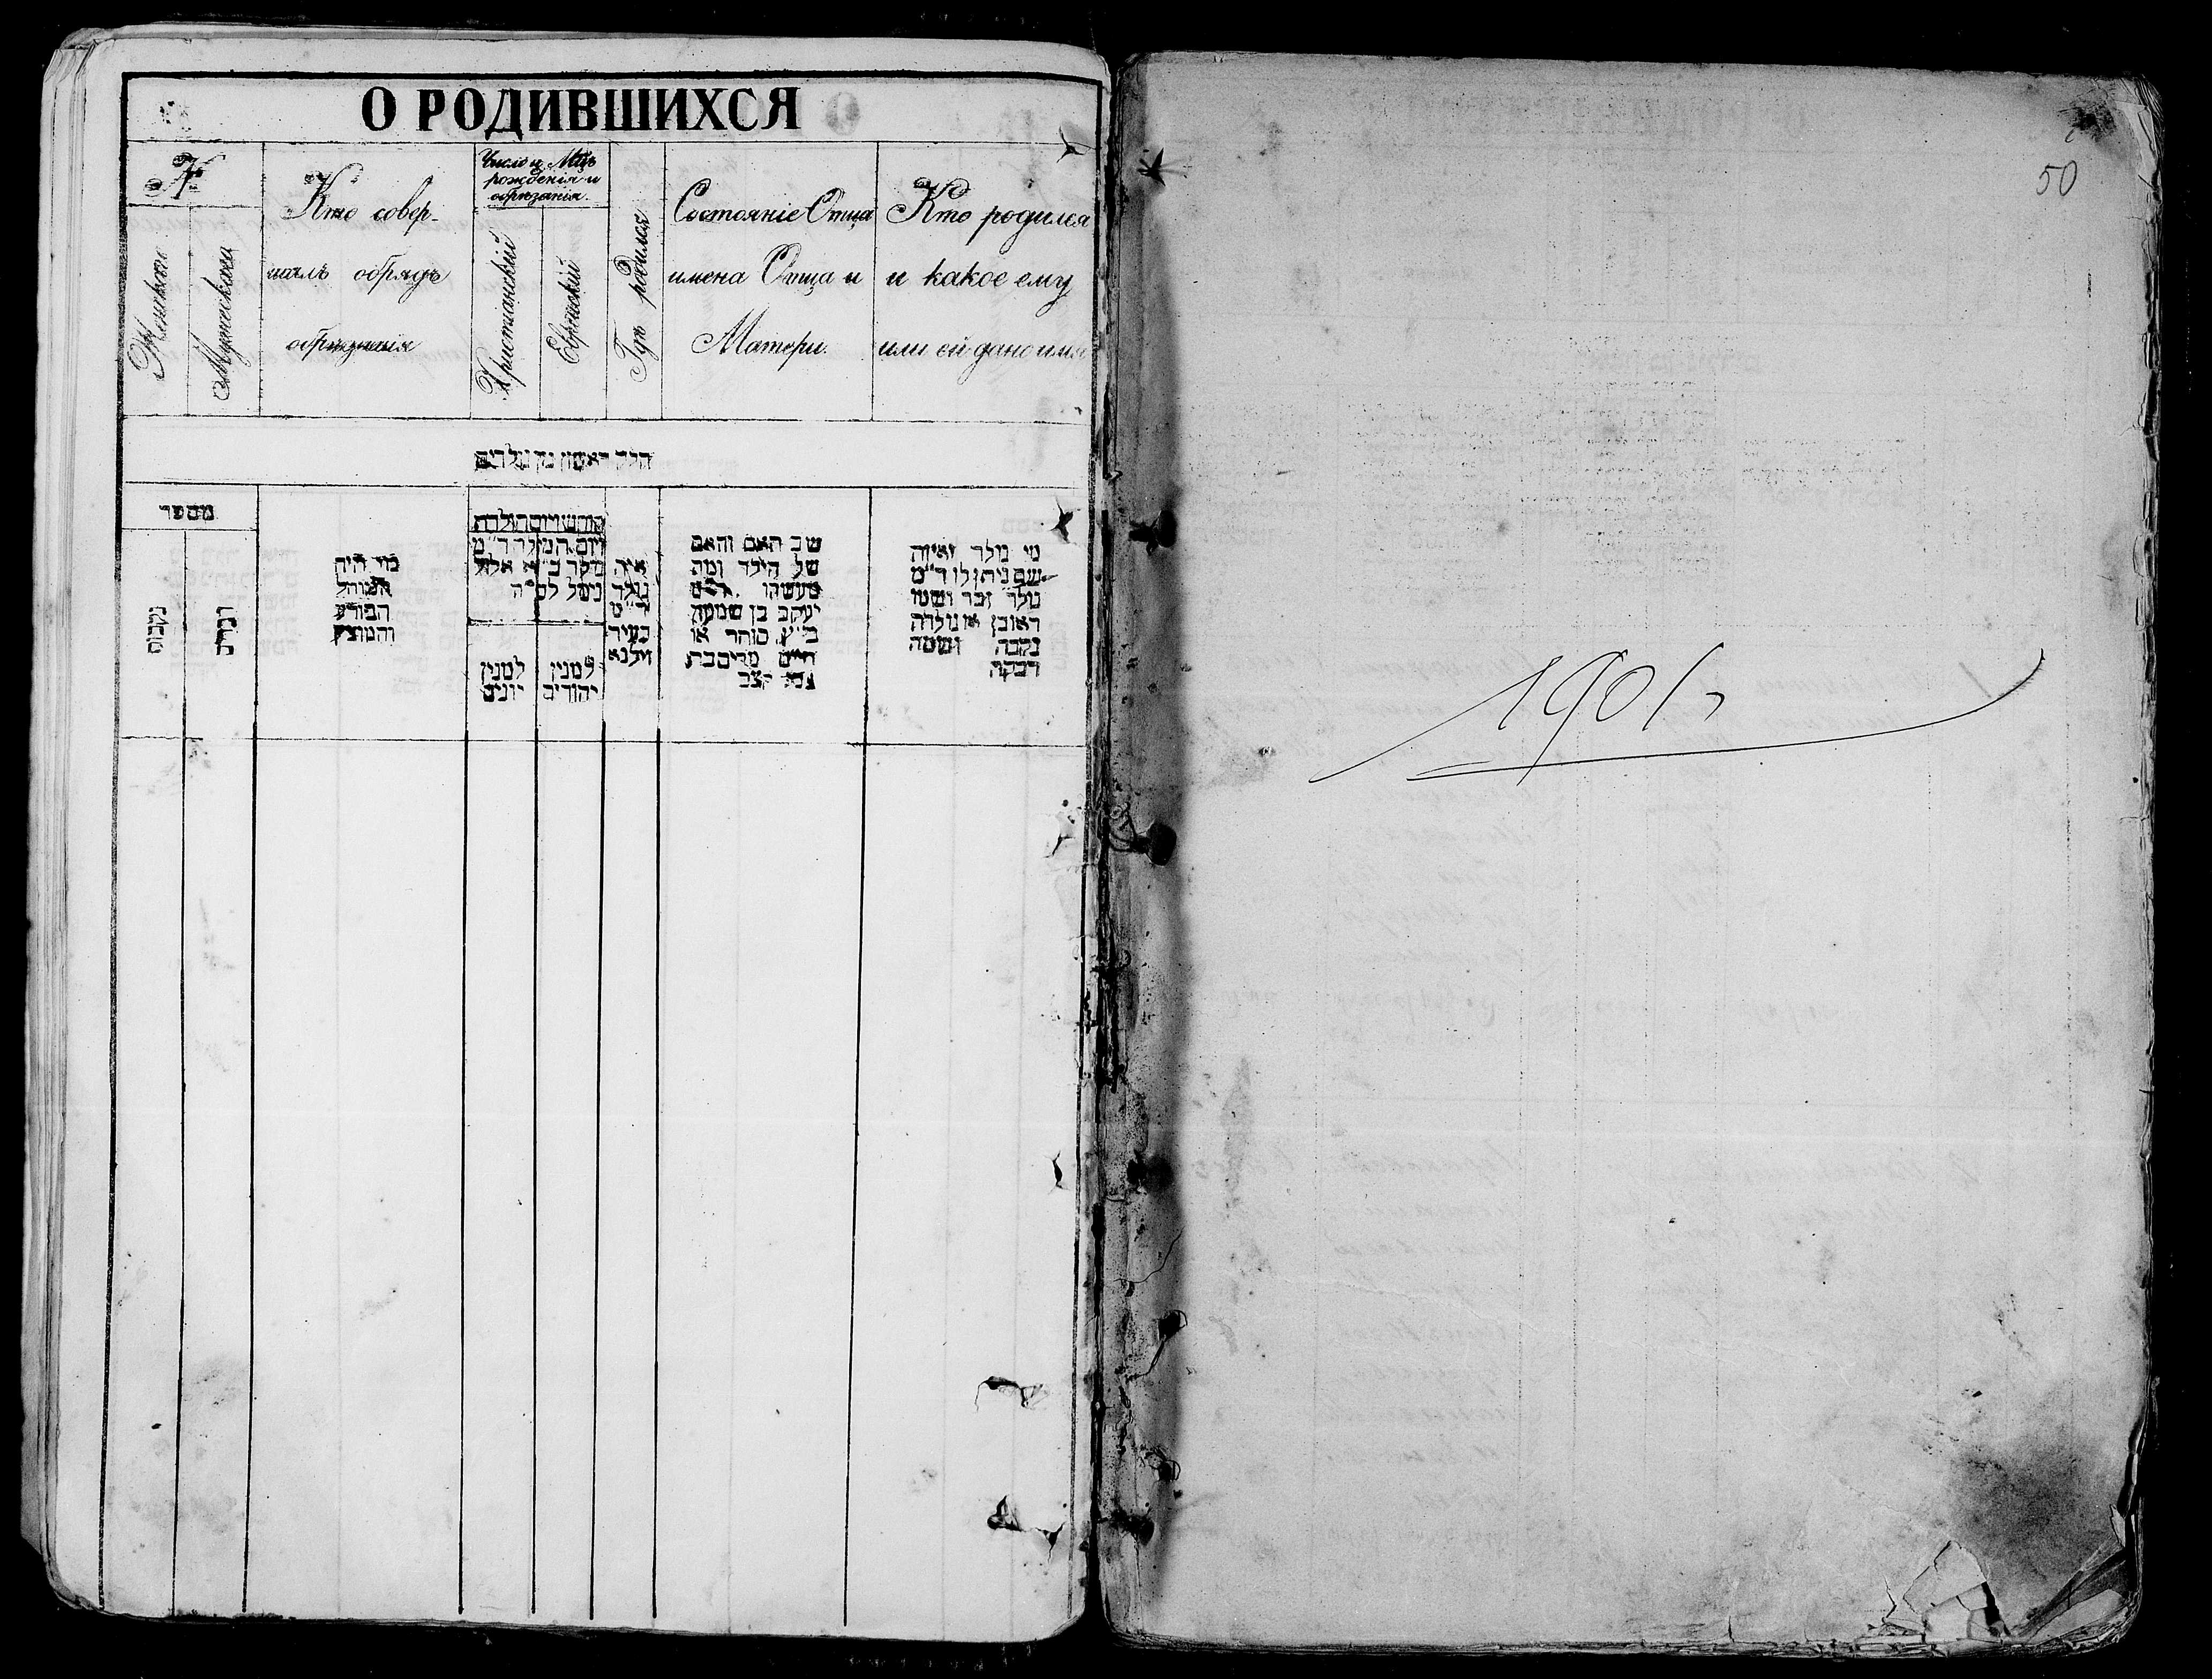 О РОДИВШИХСЯ
№
Женскаго
Мужескаго
Кто совер-
шалъ обрядъ
обрѣзанія
Число и Мѣц.
рожденія и
обрѣзанія.
Христіанскій
Еврейскій
Гдѣ родился
Состояніе Отца
имена Отца и
Матери.
Кто родился
и какое ему
или ей дано имя
חלק ראשון מן נולדים
מספר
נקבות
זכרים
מי היה
המוהל
הפורע
והמוצץ
חודש ויום הולדת
ויום המילה ד״מ
למנין
יונים
למנין
יהודים
איה
נולד
ד״מ
בעיר
ווילנא
שם האב והאם
של הילד ומה
מעשהו
יעקב בן שמעון
כ״ץ סוחר או
חיים
קצב
מי נולד ואיזה
שם ניתן לו ד״מ
נולד זכר ושמו
ראובן או נולדה
נקבה ושמה
רבקה
50
1901 г